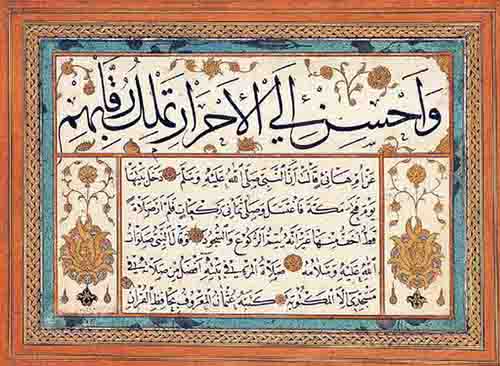 وَاَحْسِنْ اِلَي الاَحْرَارِ تَمْلِكْ رِقَابَهُم
عن ام هاني قالت ان النبي صلى الله عليه وسلم دخل بيتها
يوم فتح مكة فاغتسل وصلى ثماني ركعات فلم ار صلاة
قط اخف منها غير انه يتم الركوع والسجود وقال النبي صلوات
الله عليه وسلامه صلاة المرء في بيته افضل من صلاته في
مسجدي الا المكتوبة كتبه عثمان المعروف بحافظ القران